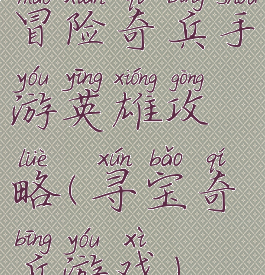 mào xiǎn qí bīng shǒu
冒险奇兵手
yóu yīng xióng gōng
游英雄攻
lüè xún bǎo qí
略(寻宝奇
bīng yóu xì
兵游戏)